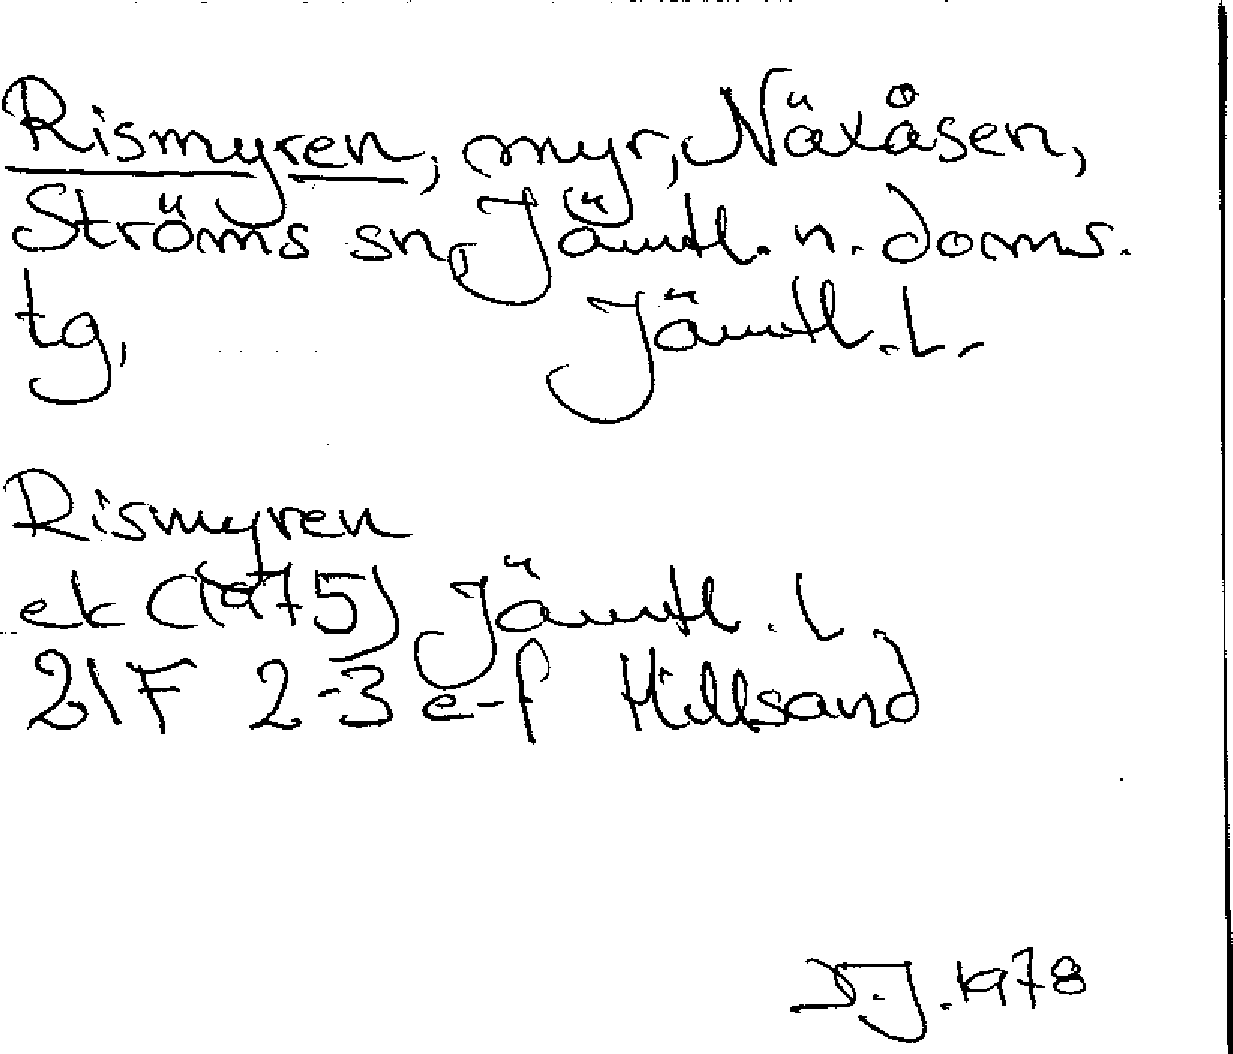 Rismyren, myr, Näxåsen,
Ströms sn, Jämtl. n. doms.
tg, Jämtl. l.
Rismyren
ek (1975) Jämtl. l.
21F 2-3 e-f Hillsand
1978